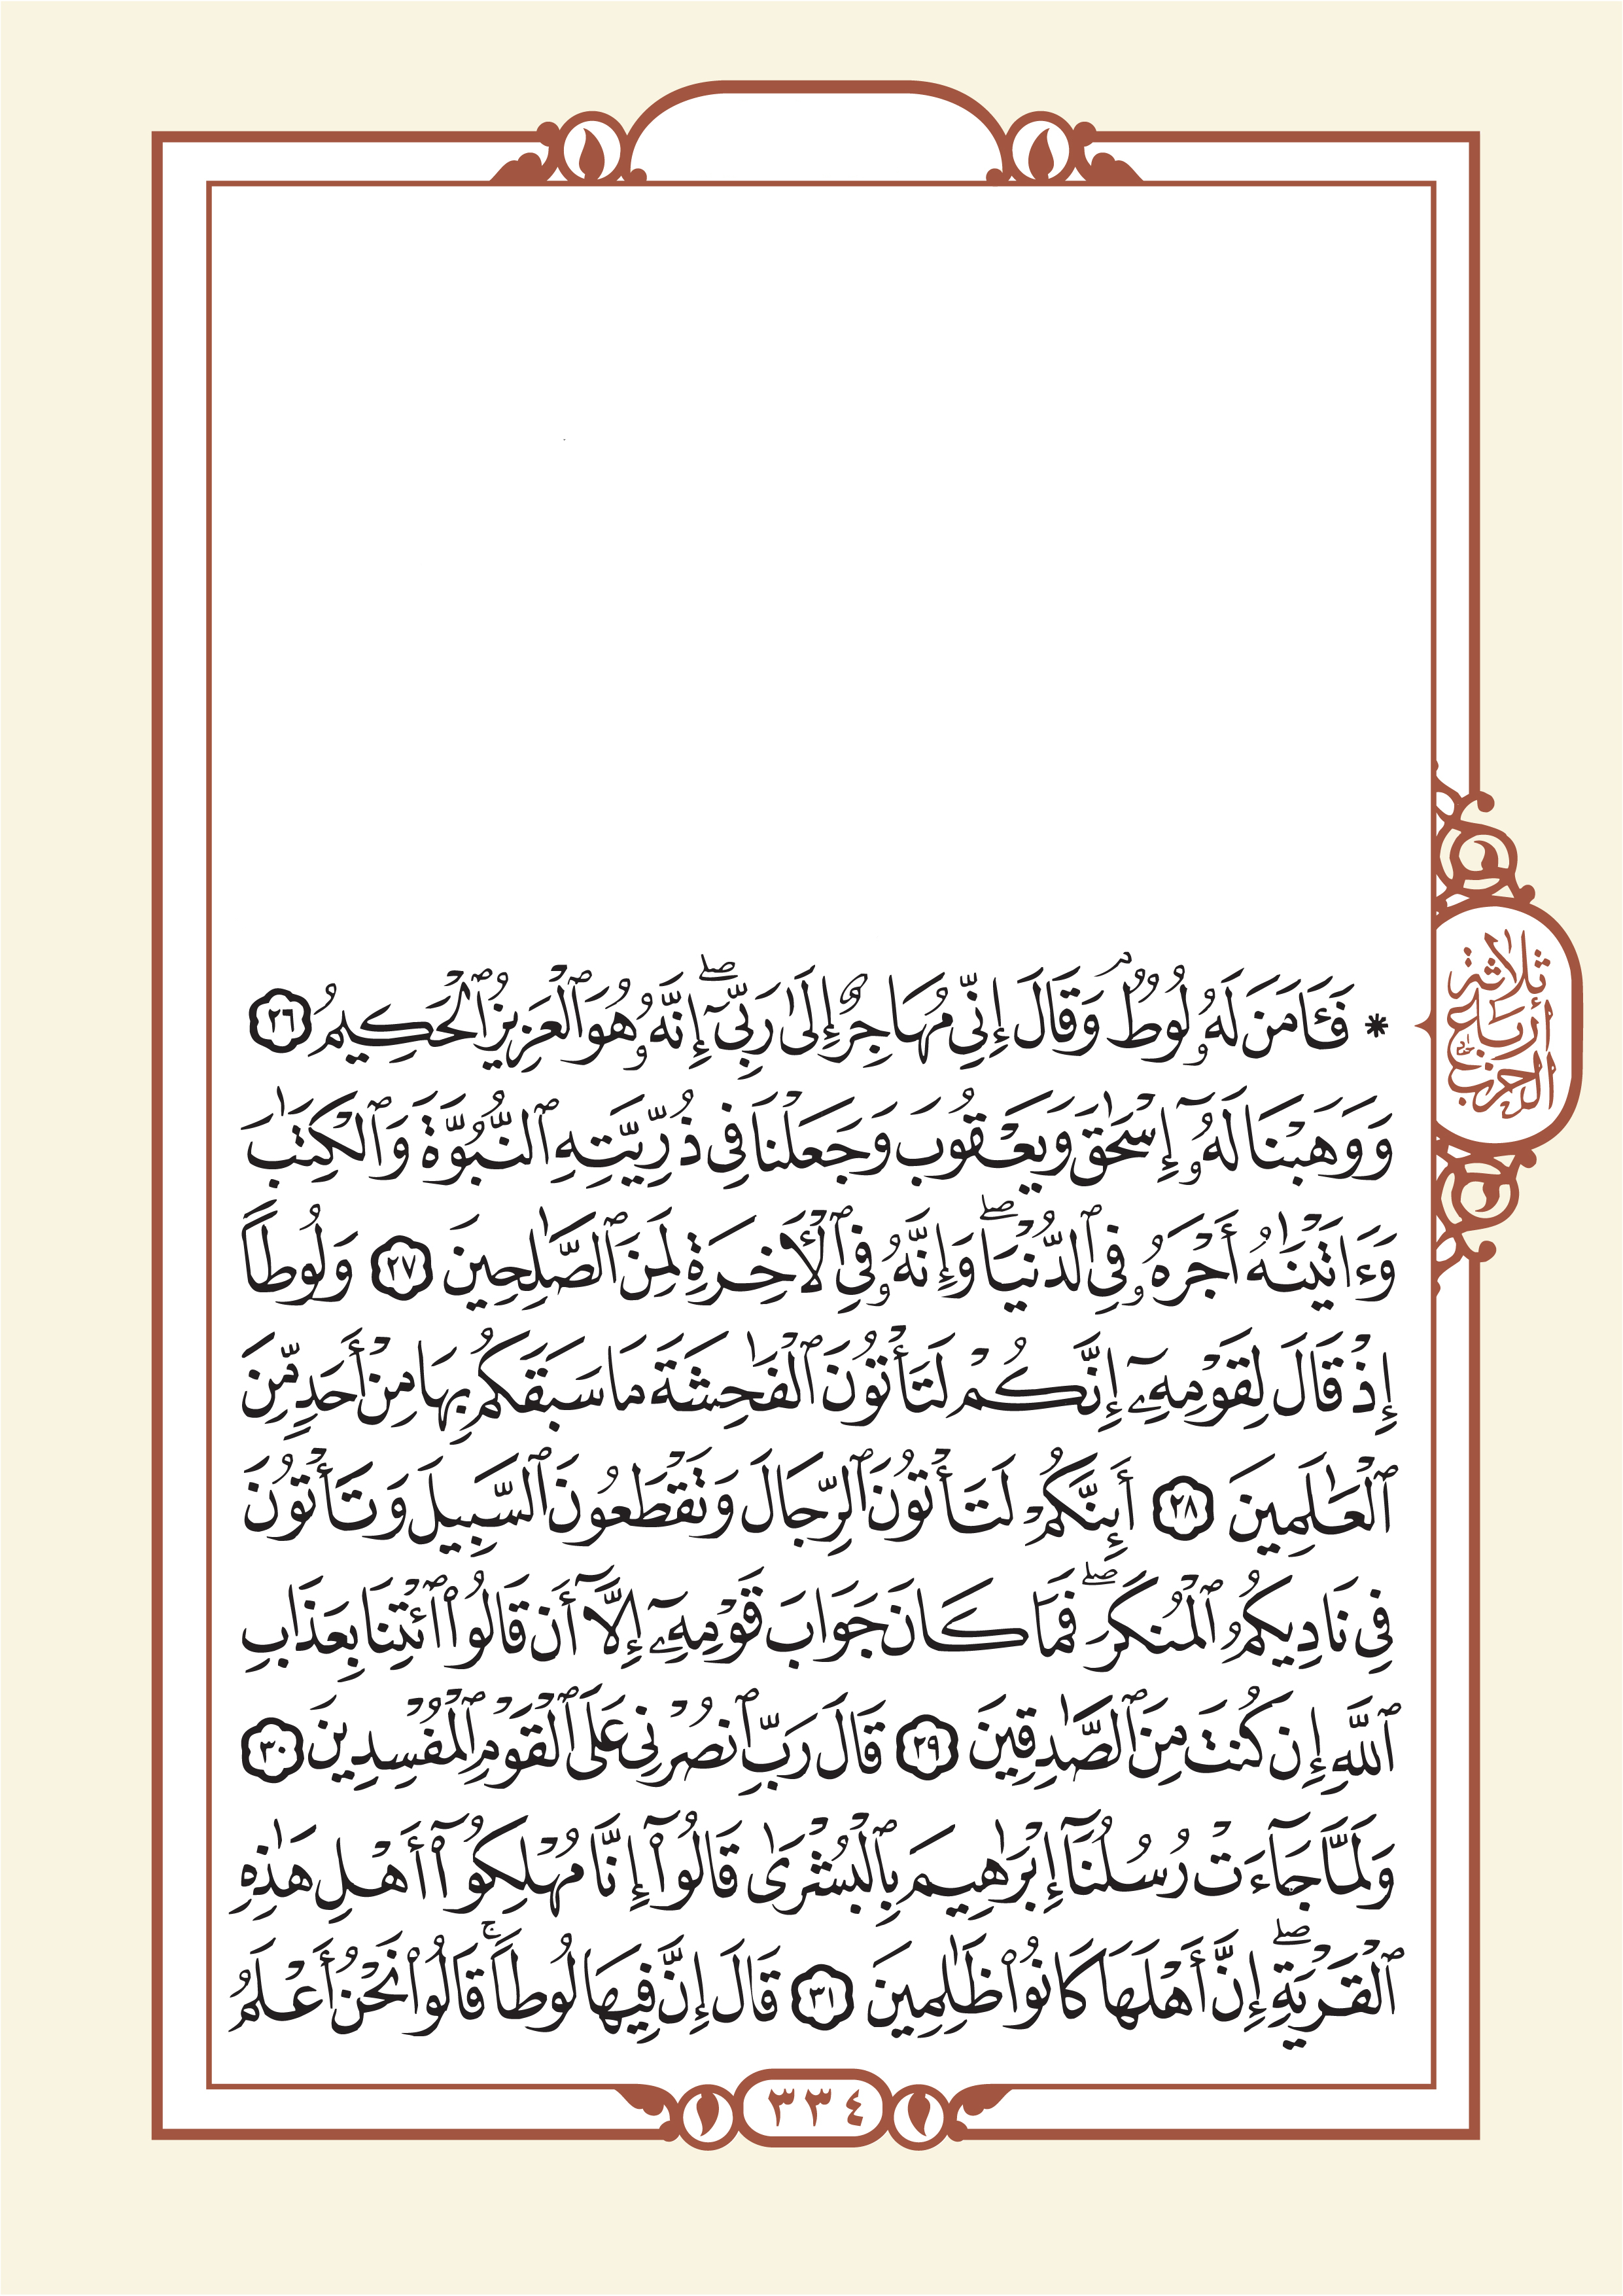 * فَـَٔامَنَ لَهُۥ لُوطٌۘ وَقَالَ إِنِّي مُهَاجِرٌ إِلَىٰ رَبِّيٓۖ إِنَّهُۥ هُوَ ٱلْعَزِيزُ ٱلْحَكِيمُ ٢٦
وَوَهَبْنَا لَهُۥٓ إِسْحَٰقَ وَيَعْقُوبَ وَجَعَلْنَا فِي ذُرِّيَّتِهِ ٱلنُّبُوَّةَ وَٱلْكِتَٰبَ
وَءَاتَيْنَٰهُ أَجْرَهُۥ فِي ٱلدُّنْيَاۖ وَإِنَّهُۥ فِي ٱلْأٓخِرَةِ لَمِنَ ٱلصَّٰلِحِينَ ٢٧ وَلُوطًا
إِذْ قَالَ لِقَوْمِهِۦٓ إِنَّكُمْ لَتَأْتُونَ ٱلْفَٰحِشَةَ مَا سَبَقَكُم بِهَا مِنْ أَحَدٍ مِّنَ
ٱلْعَٰلَمِينَ ٢٨ أَئِنَّكُمْ لَتَأْتُونَ ٱلرِّجَالَ وَتَقْطَعُونَ ٱلسَّبِيلَ وَتَأْتُونَ
فِي نَادِيكُمُ ٱلْمُنكَرَۖ فَمَا كَانَ جَوَابَ قَوْمِهِۦٓ إِلَّآ أَن قَالُوا۟ ٱئْتِنَا بِعَذَابِ
ٱللَّهِ إِن كُنتَ مِنَ ٱلصَّٰدِقِينَ ٢٩ قَالَ رَبِّ ٱنصُرْنِي عَلَى ٱلْقَوْمِ ٱلْمُفْسِدِينَ ٣٠
وَلَمَّا جَآءَتْ رُسُلُنَآ إِبْرَٰهِيمَ بِٱلْبُشْرَىٰ قَالُوٓا۟ إِنَّا مُهْلِكُوٓا۟ أَهْلِ هَٰذِهِ
ٱلْقَرْيَةِۖ إِنَّ أَهْلَهَا كَانُوا۟ ظَٰلِمِينَ ٣١ قَالَ إِنَّ فِيهَا لُوطًاۚ قَالُوا۟ نَحْنُ أَعْلَمُ
ثلاثة
أرباع
الحزب
٣٣٤